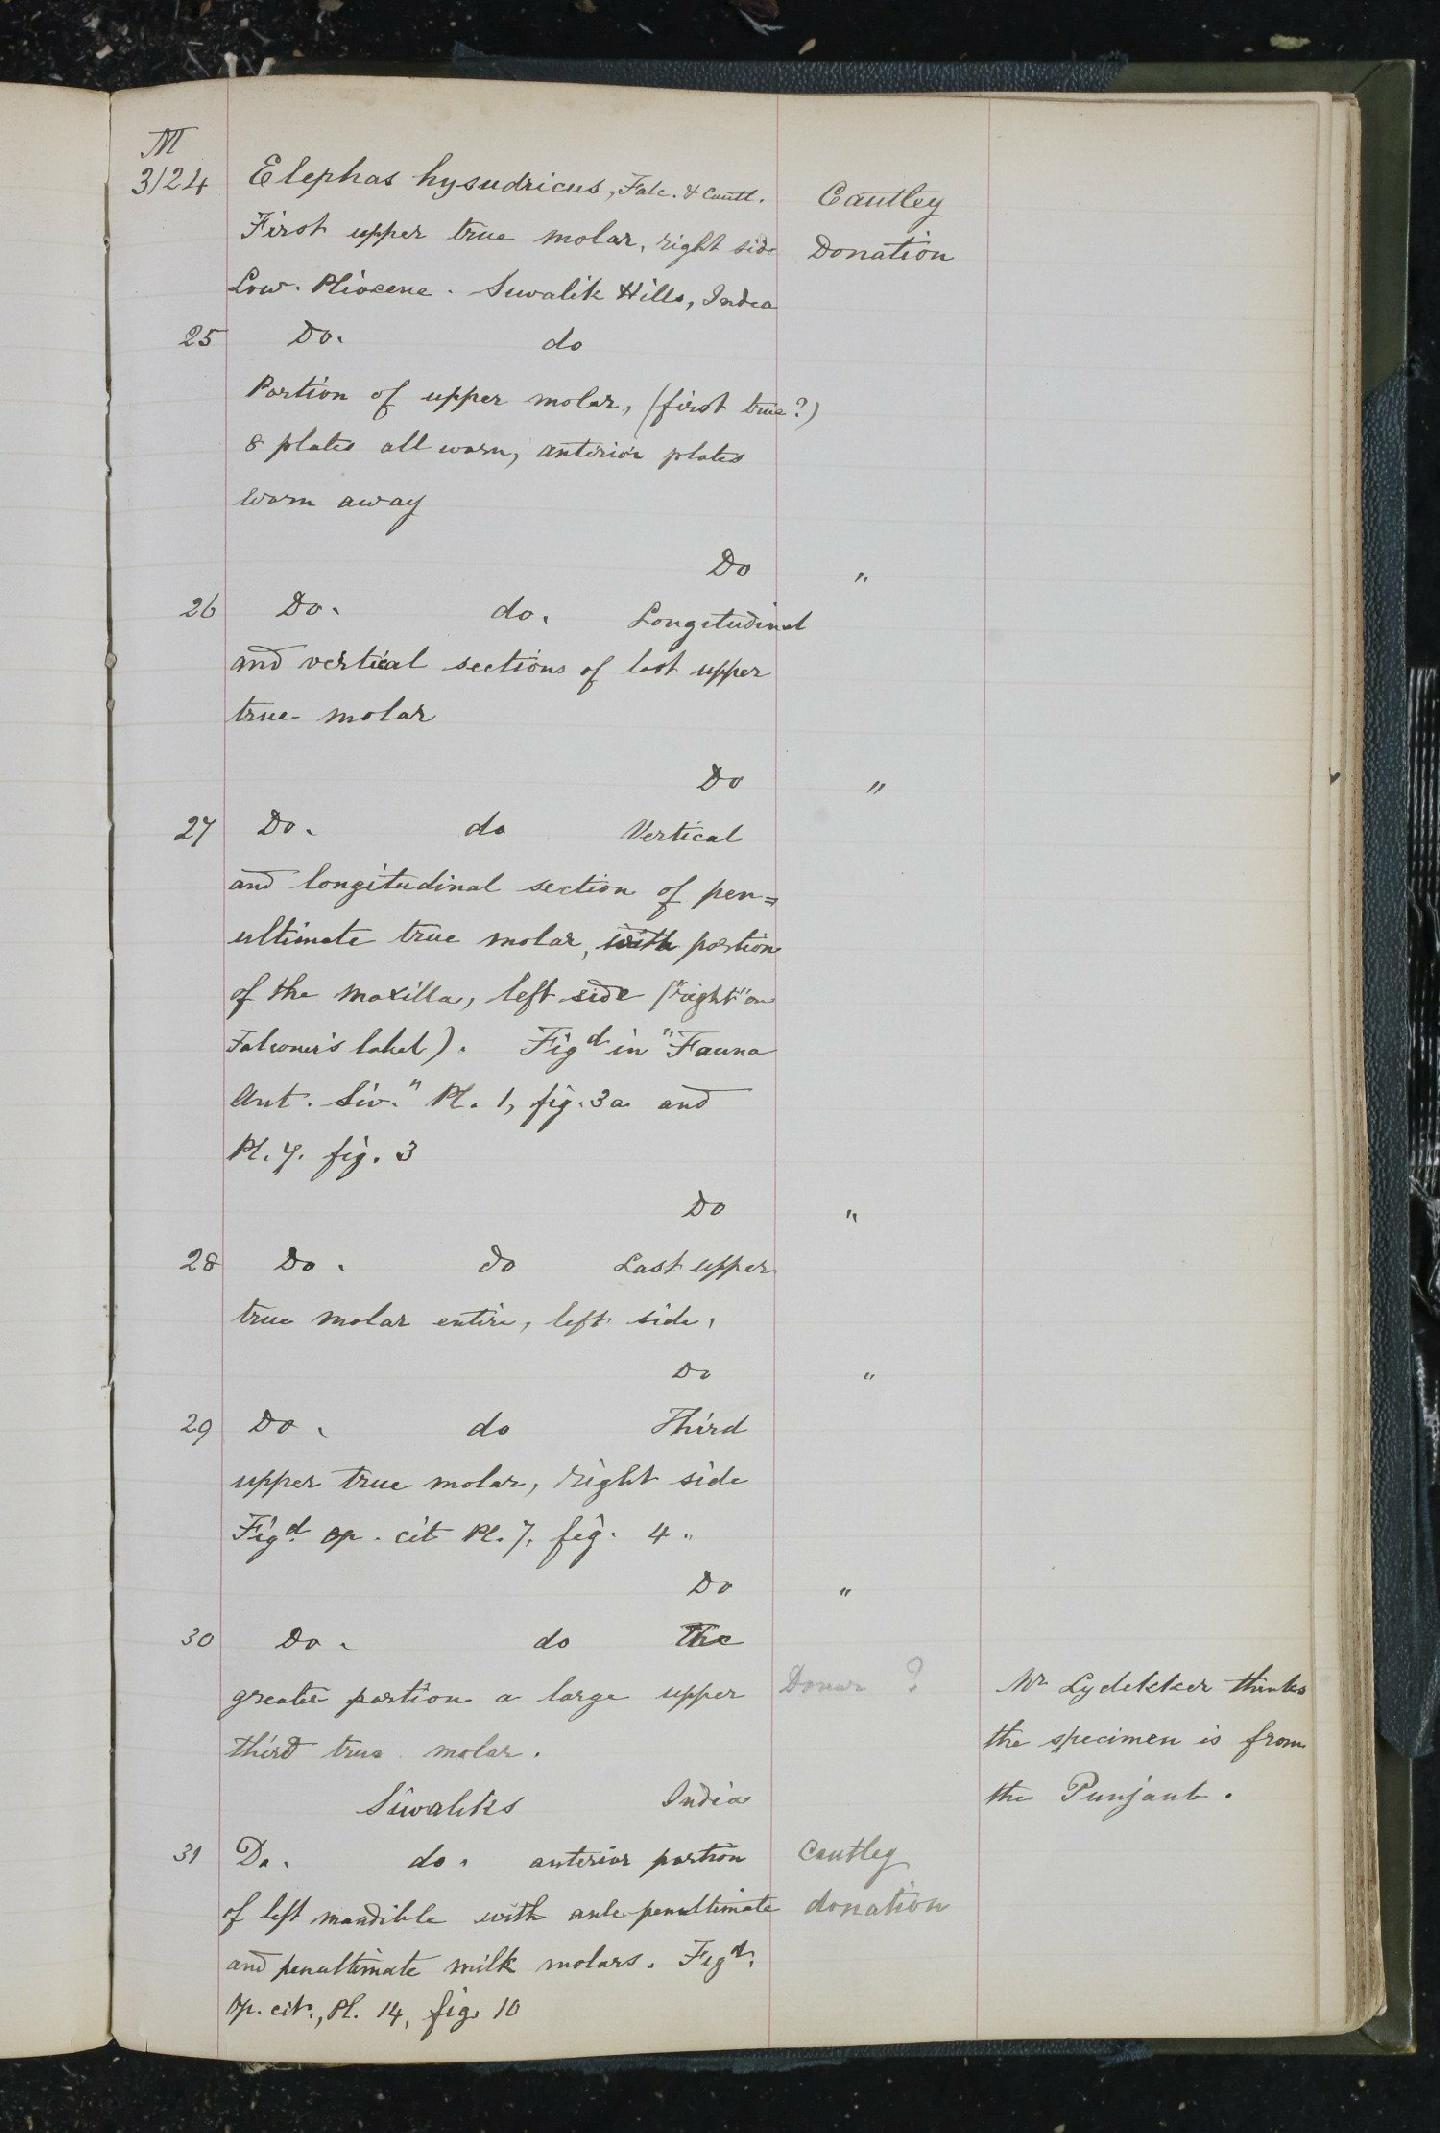 M
3124 Elephas hysudricus, Falc. & Cautl. Cautley
First upper true molar, right side Donation
Low. Pliocene. Siwalik Hills, India
25 Do. do
Portion of upper molar, (first true?)
8 plates all worn, anterior plates
worn away
Do "
26 Do. do. Longitudinal
and vertical sections of last upper
true molar
Do "
27 Do. do Vertical
and longitudinal section of pen=
ultimate true molar, with portion
of the maxilla, left side ("right" on
Falconer's label). Figd in "Fauna
Ant. Siv." Pl. 1, fig. 3a and
Pl. 7. fig. 3
Do "
28 Do. do Last upper
true molar entire, left side,
Do "
29 Do. do Third
upper true molar, right side
Figd. op. cit Pl. 7, fig. 4.
Do "
30 Do. do The
greater portion a large upper Donor ? Mr Lydekker thinks
third true molar. the specimen is from
Siwaliks India the Punjaub.
31 Do. do. anterior portion Cautley
of left mandible with ante-penultimate donation
and penultimate milk molars. Figd.
Op. cit., Pl. 14, fig. 10